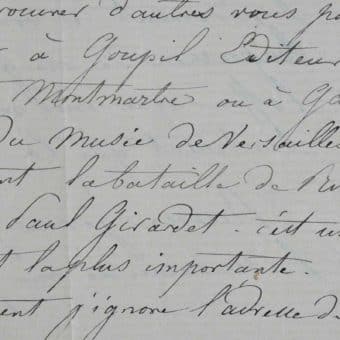 rocurer d'autres vous po
à Goupil Editeur
Montmartre ou à Ga
Du Musée de Versailles
la bataille de
Paul Girardet. c'est u
la plus importante.
ent j'ignore l'adresse de